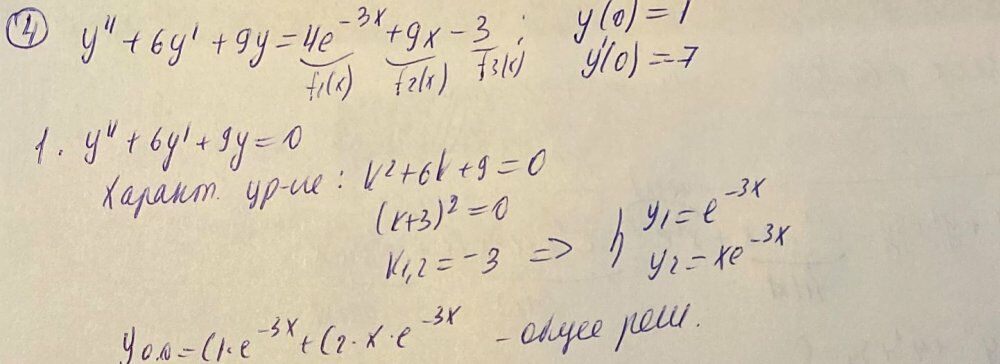 ④ y'' + 6y' + 9y = 4e^{-3x} + 9x - 3 ; y(0) = 1
f₁(x) f₂(x) f₃(x) y'(0) = 7
1. y'' + 6y' + 9y = 0
Характ. ур-ие : k² + 6k + 9 = 0
(k+3)² = 0
k₁,₂ = -3 => } y₁ = e^{-3x}
y₂ = xe^{-3x}
y о.о = C₁·e^{-3x} + C₂·x·e^{-3x} - общее реш.